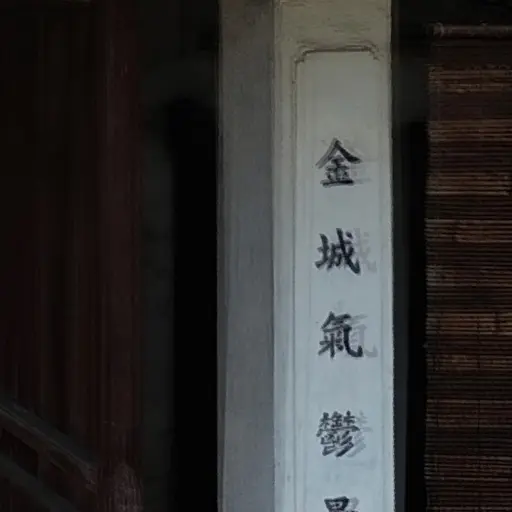 金城氣鬱